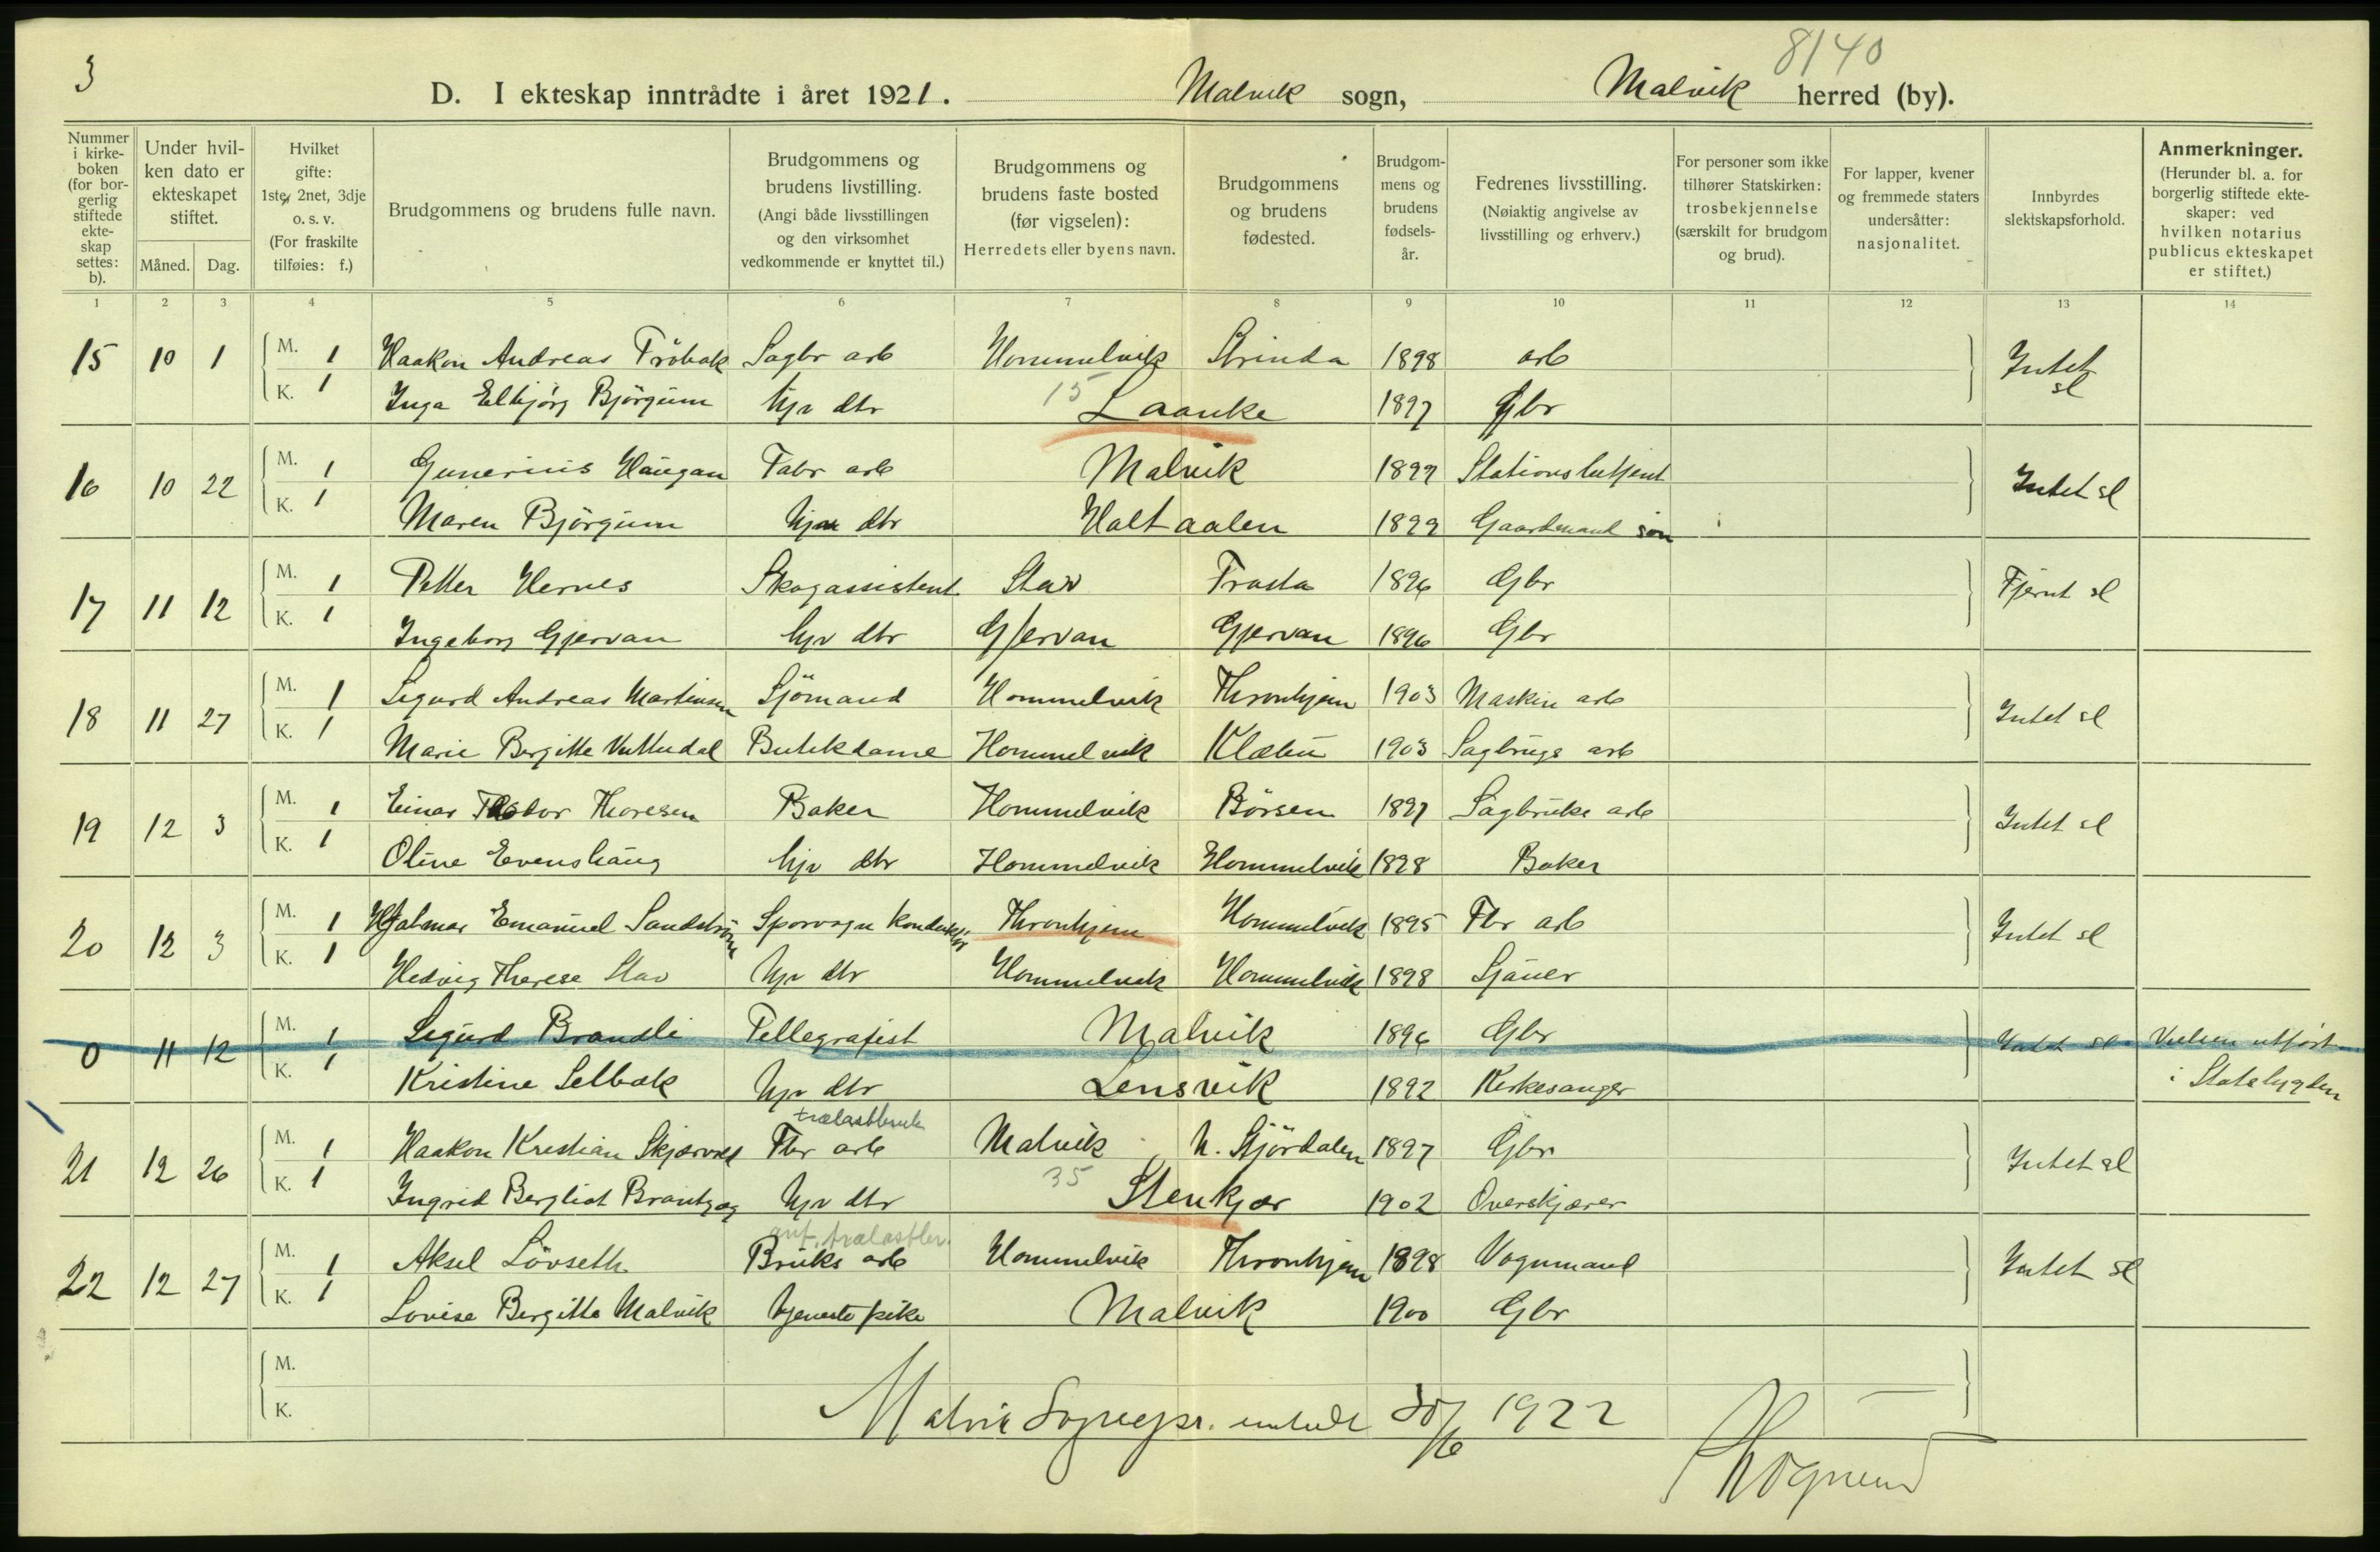 3
8140
D. I ekteskap inntrådte i året 1921. Malvik sogn, Malvik herred (by).
Nummer i kirke-boken (for bor-gerlig stiftede ekte-skap settes: b).
Under hvil-ken dato er ekteskapet stiftet.
Måned. Dag.
Hvilket gifte: 1ste, 2net, 3dje o. s. v. (For fraskilte tilføies: f.)
Brudgommens og brudens fulle navn.
Brudgommens og brudens livstilling. (Angi både livsstillingen og den virksomhet vedkommende er knyttet til.)
Brudgommens og brudens faste bosted (før vigselen): Herredets eller byens navn.
Brudgommens og brudens fødested.
Brudgom-mens og brudens fødsels-år.
Fedrenes livsstilling. (Nøiaktig angivelse av livsstilling og erhverv.)
For personer som ikke tilhører Statskirken: trosbekjennelse (særskilt for brudgom og brud).
For lapper, kvener og fremmede staters undersåtter: nasjonalitet.
Innbyrdes slektskapsforhold.
Anmerkninger. (Herunder bl. a. for borgerlig stiftede ekte-skaper: ved hvilken notarius publicus ekteskapet er stiftet.)
1 2 3 4 5 6 7 8 9 10 11 12 13 14
15 10 1 M. 1 Haakon Andreas Fröbak Sagbr arb Hommelvik Strinda 1898 arb Intet sl
K. 1 Inga Elbjørg Björgum Hjv dtr 15 Laanke 1897 Gbr
16 10 22 M. 1 Gunerius Haugan Fabr arb Malvik 1899 Stationsbetjent Intet sl
K. 1 Maren Björgum Hjv dtr Haltaalen 1899 Gaardmand søn
17 11 12 M. 1 Petter Hernes Skogassistent Stav Frosta 1896 Gbr Fjernt sl
K. 1 Ingeborg Gjervan Hjv dtr Gjervan Gjervan 1896 Gbr
18 11 27 M. 1 Sigurd Andreas Martinsen Sjömand Hommelvik Thronhjem 1903 Maskin arb Intet sl
K. 1 Marie Bergitte Vuttudal Butikdame Hommelvik Klæbu 1903 Sagbrugs arb
19 12 3 M. 1 Einar Thoresen Baker Hommelvik Börsen 1897 Sagbruks arb Intet sl
K. 1 Oline Evenshaug Hjv dtr Hommelvik Hommelvik 1898 Baker
20 12 3 M. 1 Hjalmar Emanuel Sandström Sporvogn konduktør Thronhjem Hommelvik 1895 Fbr arb Intet sl
K. 1 Hedvig Therese Stav Hjv dtr Hommelvik Hommelvik 1898 Sjauer
0 11 12 M. 1 Sigurd Brandli Tellegrafist Malvik 1896 Gbr Intet sl Vielsen utført
K. 1 Kristine Selbæk Hjv dtr Lensvik 1892 Kirkesanger i Statsbygden
trælastbruk
21 12 26 M. 1 Haakon Kristian Skjærvold Fbr arb Malvik N. Stjördalen 1897 Gbr Intet sl
K. 1 Ingrid Bergliot Brantzæg Hjv dtr 35 Stenkjær 1902 Overskjærer
trælastbr.
22 12 27 M. 1 Aksel Lövseth Bruks arb Hommelvik Thronhjem 1898 Vognmand Intet sl
K. 1 Lovise Bergitte Malvik tjeneste pike Malvik 1900 Gbr
M.
K.
Malvik Sognepr. embede 30/6 1922